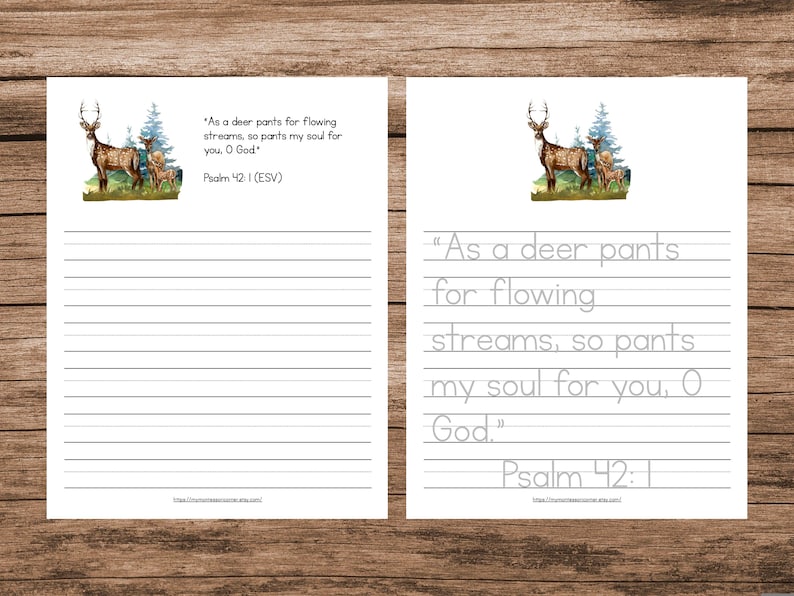 "As a deer pants for flowing
streams, so pants my soul for
you, O God."
Psalm 42: 1 (ESV)
https://mymontessoricorner.etsy.com/
"As a deer pants
for flowing
streams, so pants
my soul for you, O
God."
Psalm 42: 1
https://mymontessoricorner.etsy.com/